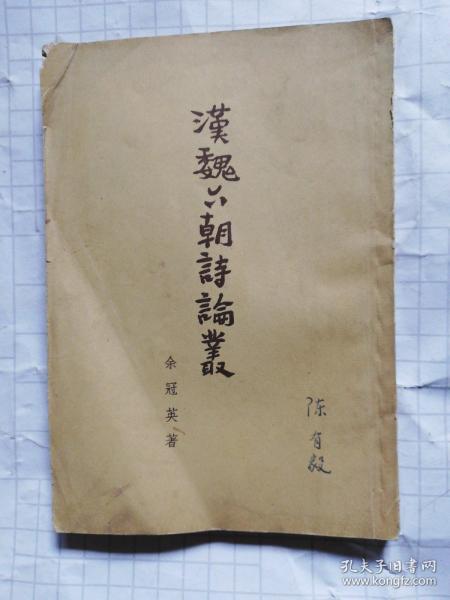 漢魏六朝詩論叢
余冠英著
陈有毅
孔夫子旧书网
www.kongfz.com